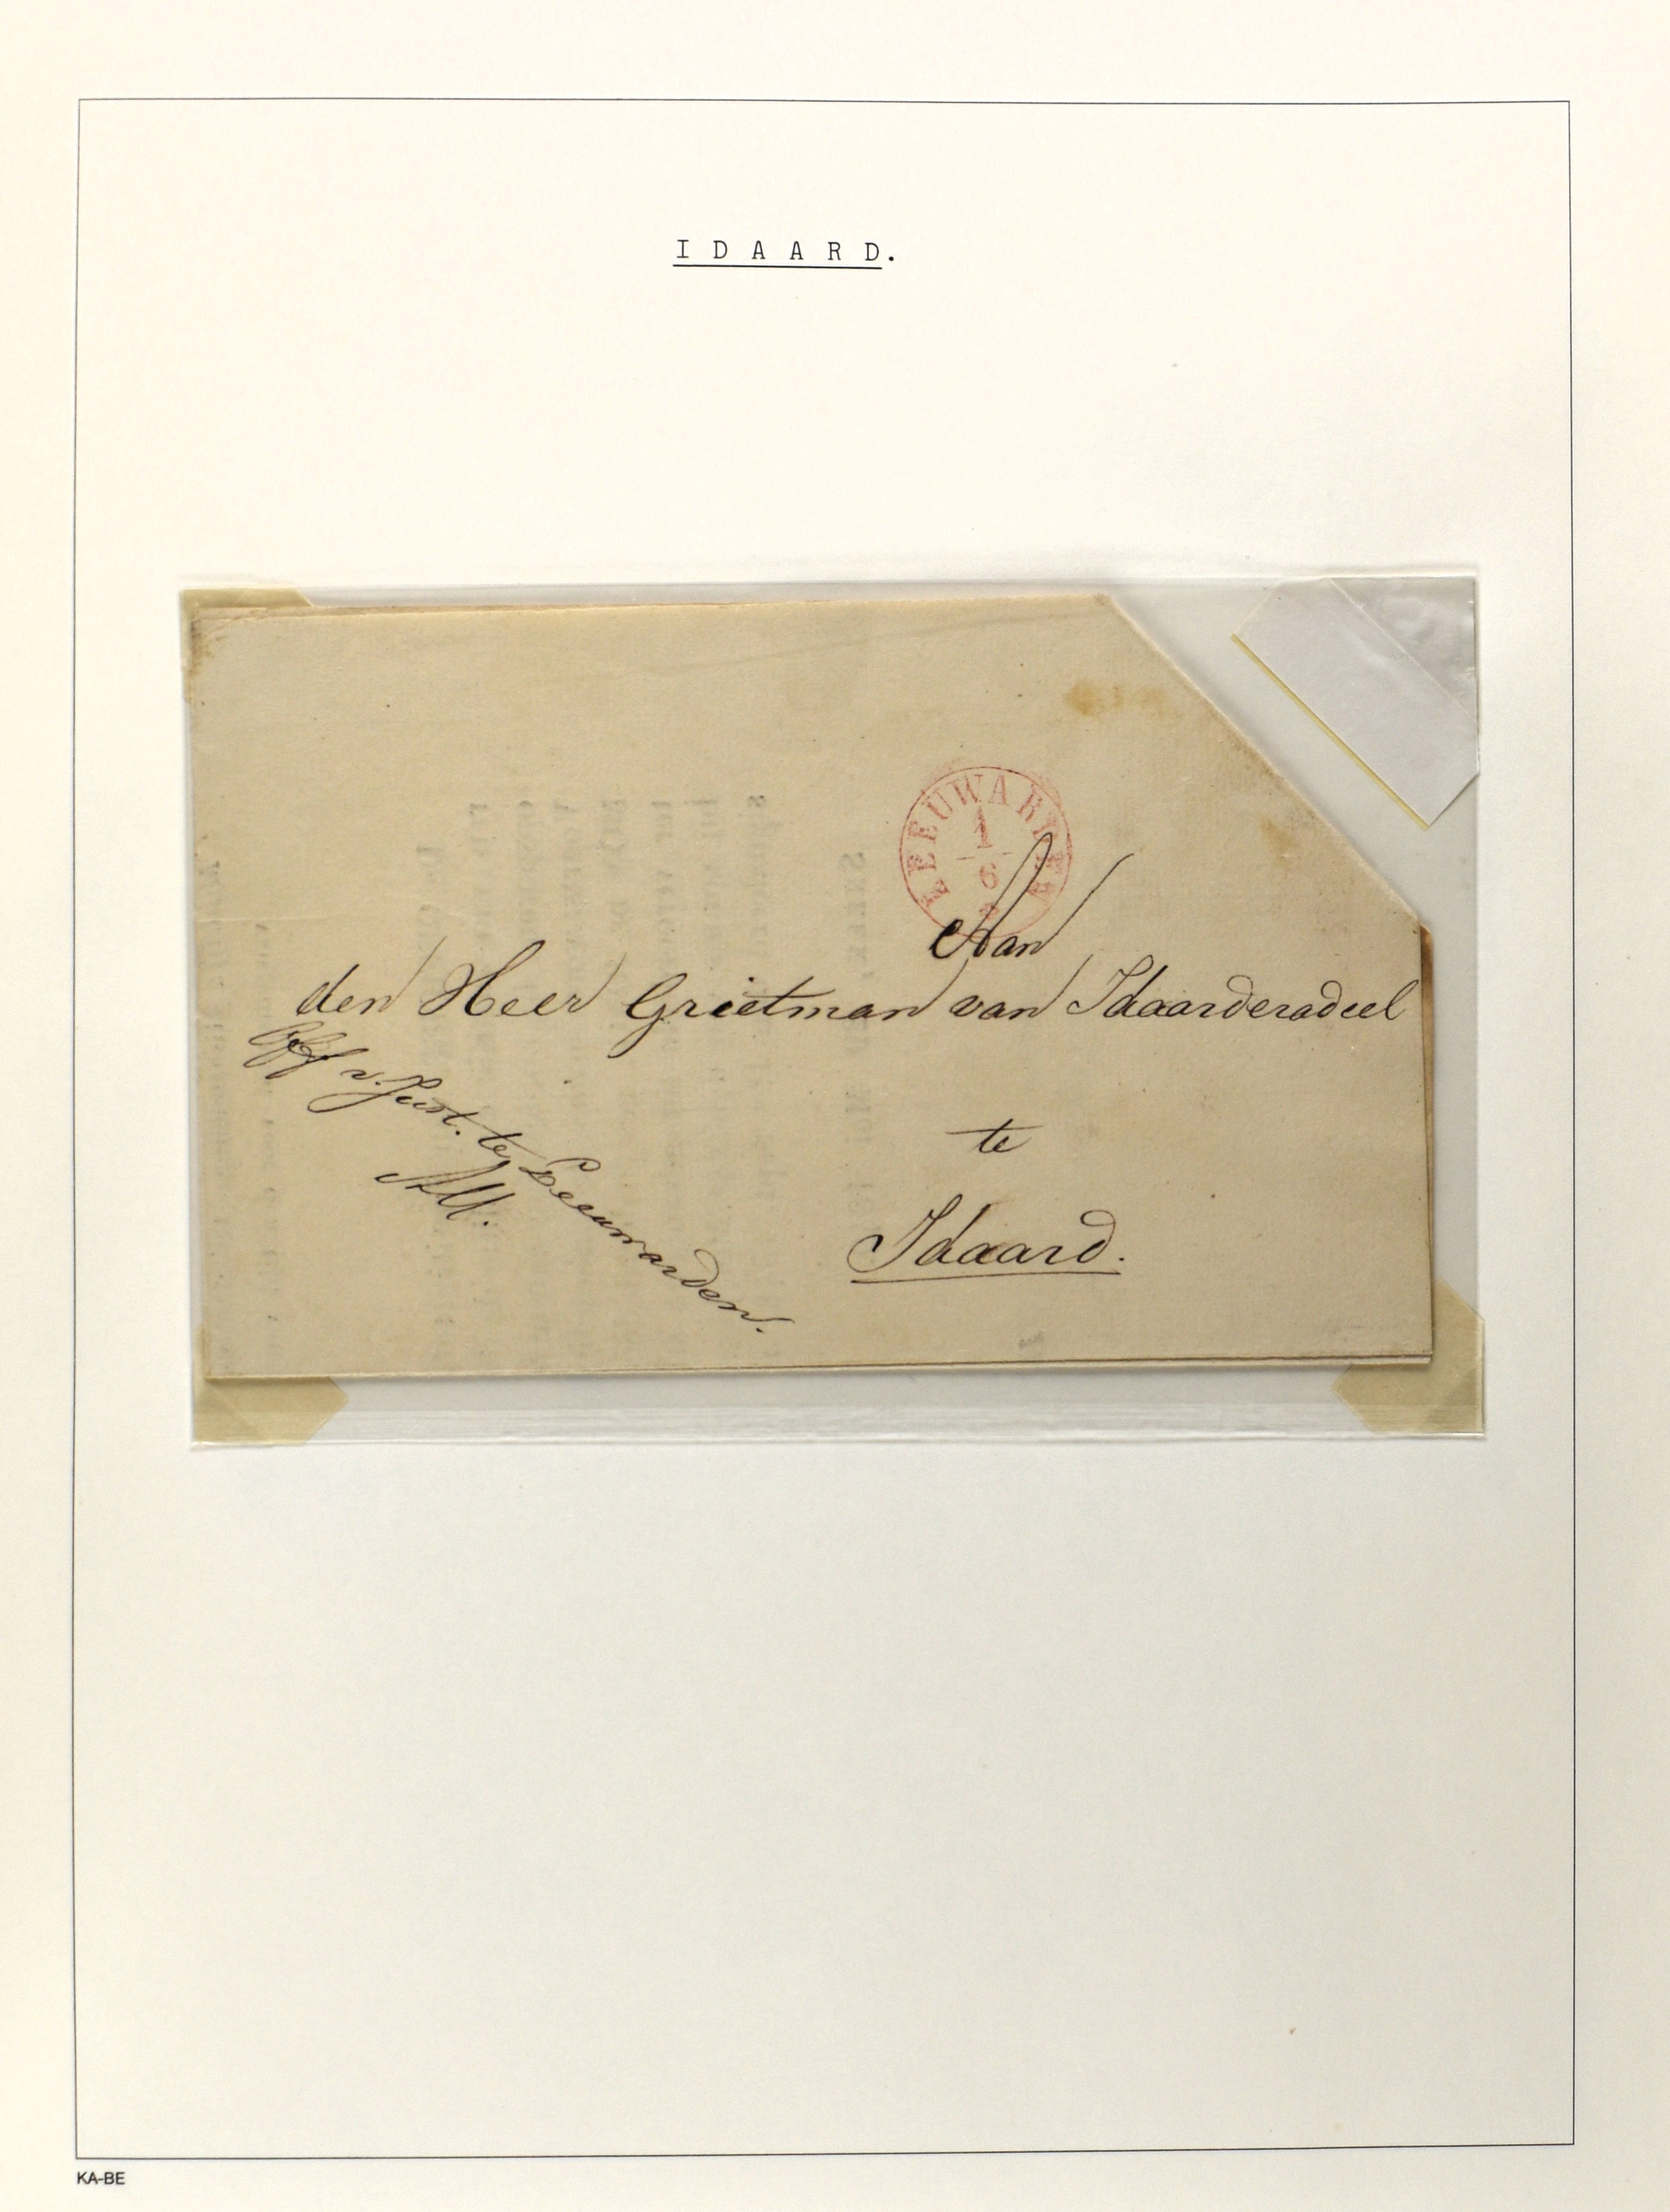 I D A A R D.
LEEUWARDEN
1
6
Aan
den Heer Grietman van Idaarderadeel
te
Idaard.
Off v. Just. te Leeuwarden.
KA-BE